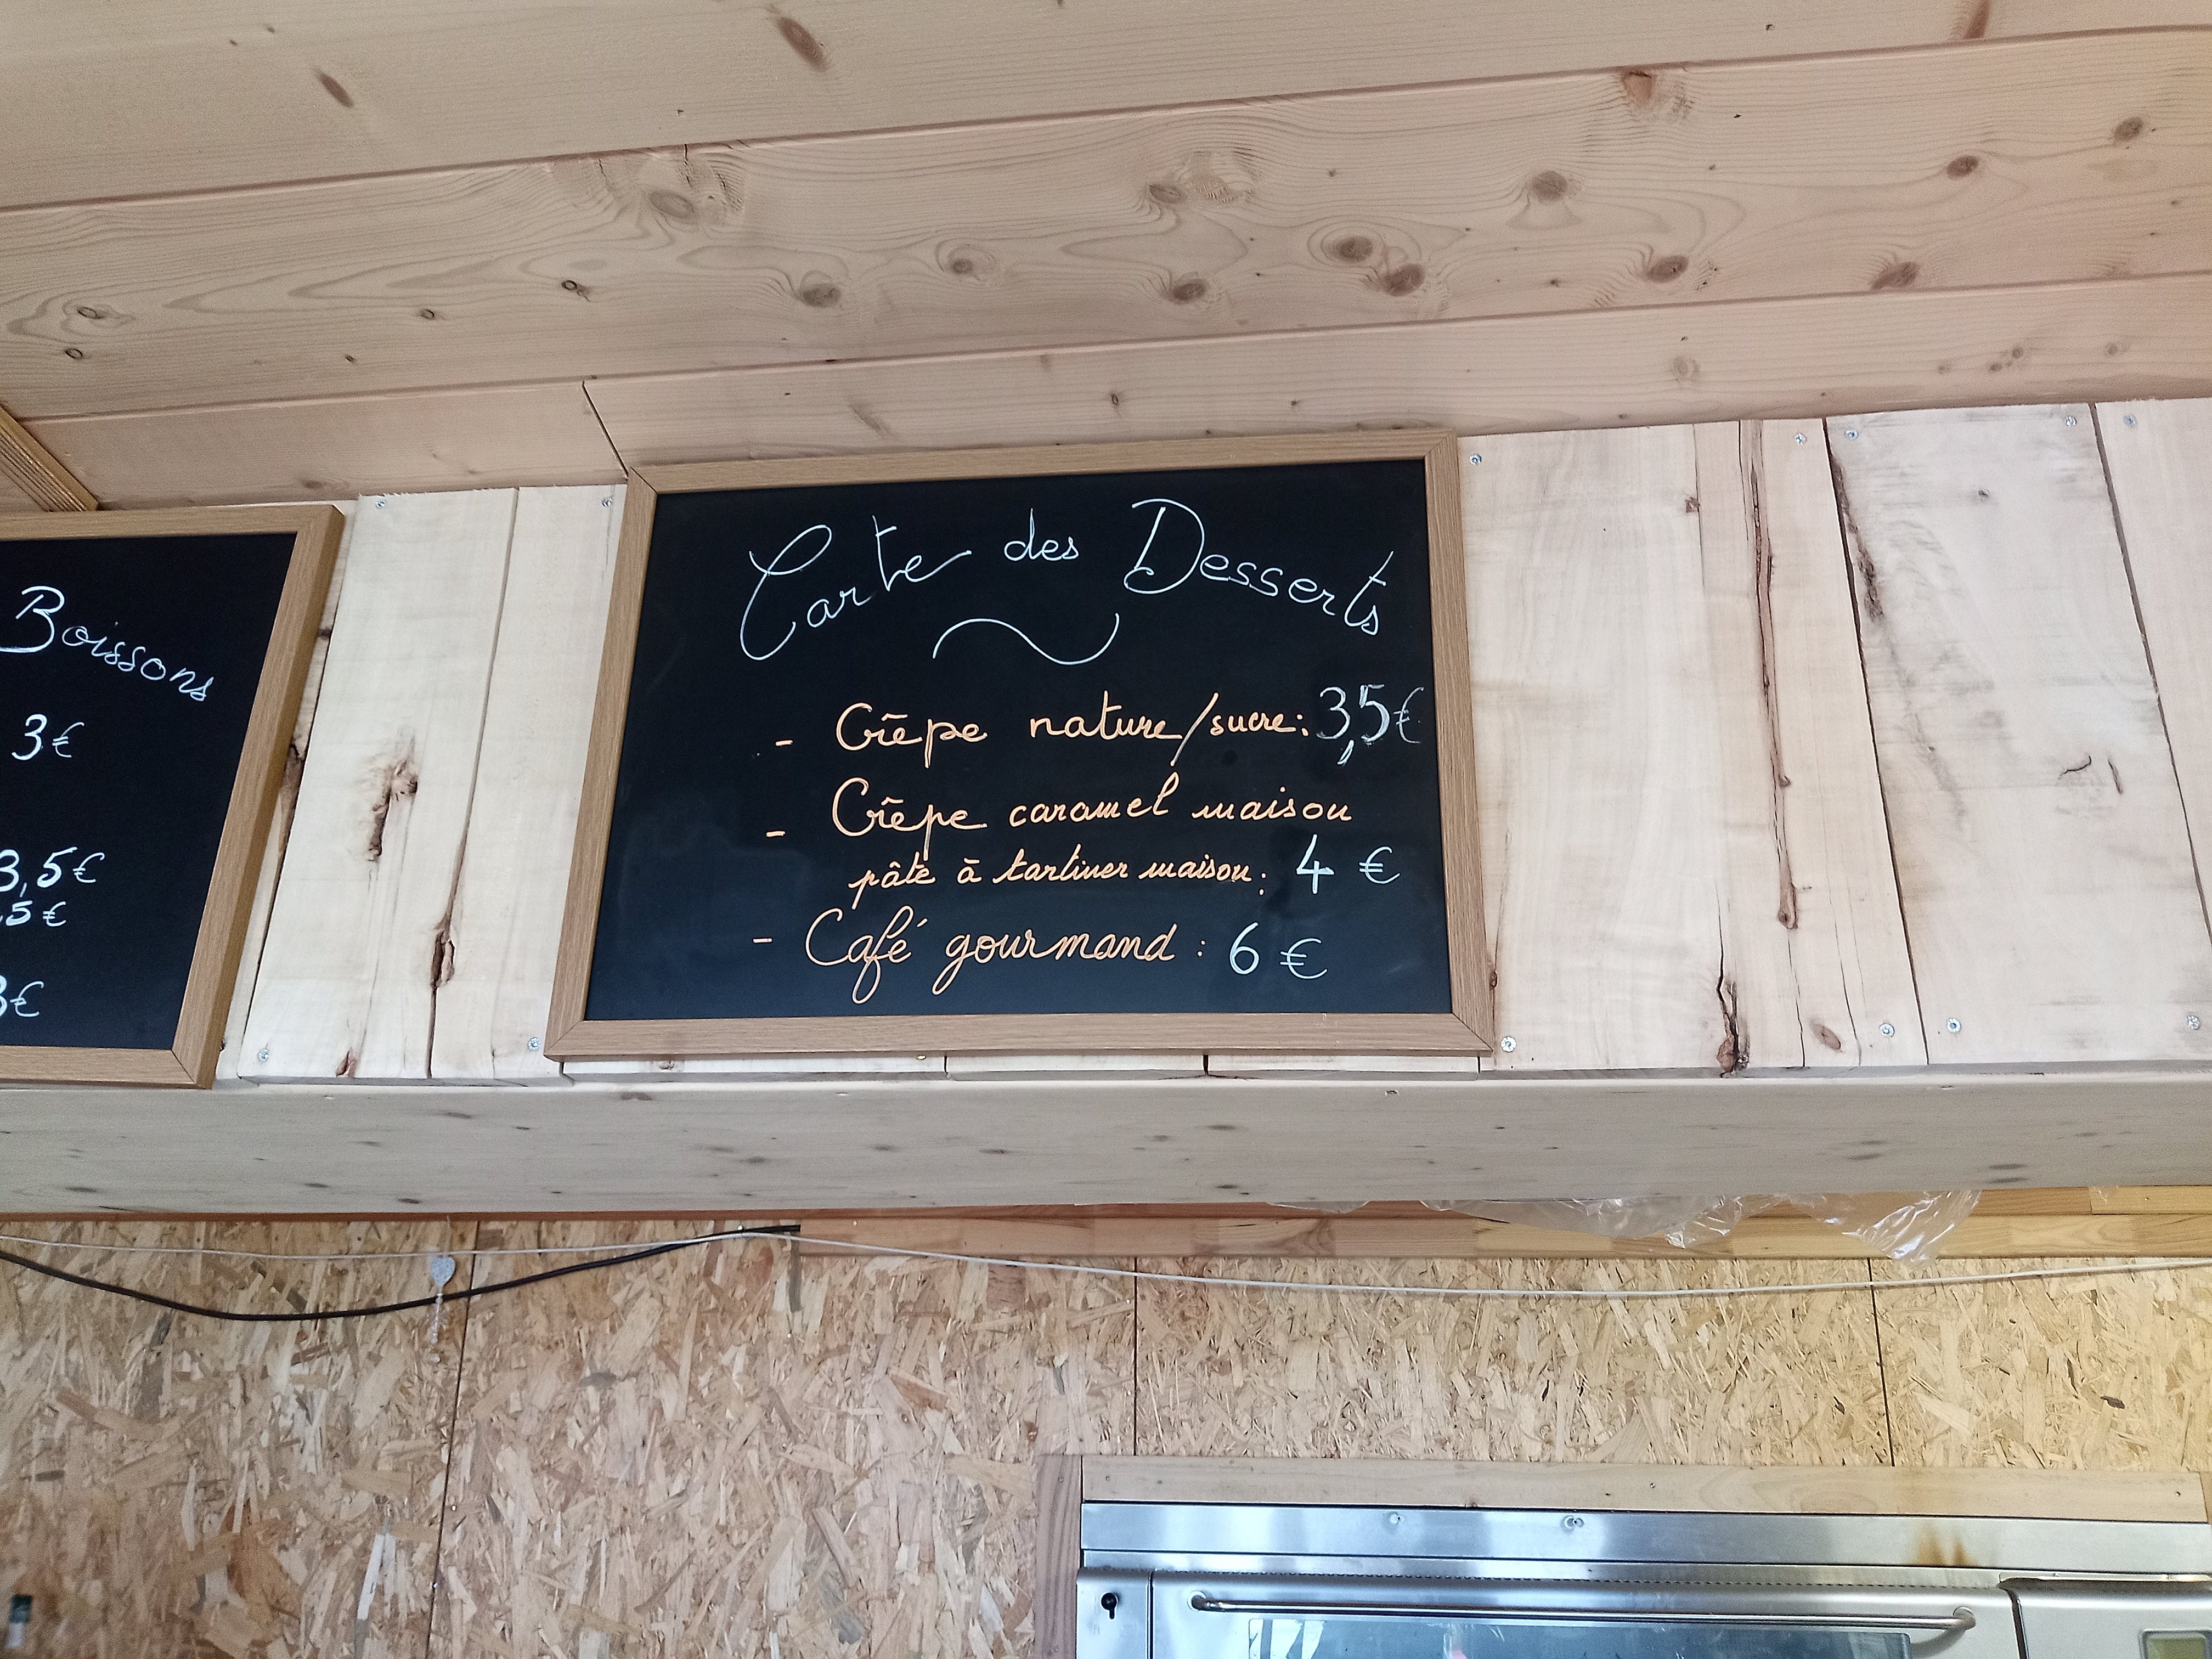 Boissons
3€
3,5€
,5€
3€
Carte des Desserts
- Crêpe nature/sucre: 3,5€
- Crêpe caramel maison
pâte à tartiner maison: 4 €
- Café gourmand : 6 €